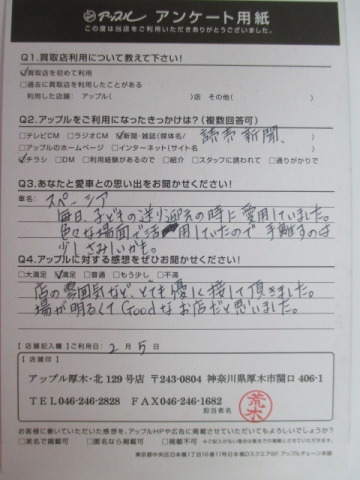 アップル アンケート用紙
この度は当店をご利用いただきありがとうございました。
Q1.買取店利用について教えて下さい!
☑買取店を初めて利用
□過去に買取店を利用したことがある
利用した店舗：アップル( )店 その他( )
Q2.アップルをご利用になったきっかけは？(複数回答可)
□テレビCM □ラジオCM ☑新聞・雑誌(媒体名/ 読売新聞、 )
□アップルのホームページ □インターネット(サイト名 )
☑チラシ □DM □利用経験があるので □紹介 □スタッフに誘われて □通りがかりで
Q3.あなたと愛車との思い出をお聞かせください!
車名: スペーシア
毎日、子どもの送り迎えの時に愛用していました。
色々な場面で活用していたので手離すのは
少しさみしいかも。
Q4.アップルに対する感想をぜひお聞かせください!
□大満足 ☑満足 □普通 □もう少し □不満
店の雰囲気など、とても優しく接して頂きました。
場が明るくてGoodなお店だと思いました。
【店舗記入欄】ご利用日: 2月5日
【店舗印】
アップル厚木・北129号店 〒243-0804 神奈川県厚木市関口406-1
TEL046-246-2828 FAX046-246-1682
担当者名 荒木
お客様に書いていただいた感想を、アップルHPや広告に掲載させていただいてもよろしいでしょうか?
□実名で掲載可 □匿名なら掲載可 □掲載不可 ※ご記入がない場合は匿名での掲載とさせていただきます。
東京都中央区日本橋1丁目16番11号日本橋Dスクエア8F アップルチェーン本部